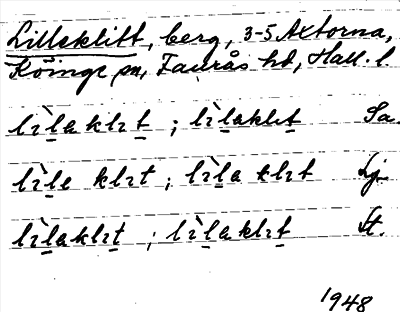 Lilleklitt, berg, 3-5 Axtorna,
Köinge sn, Faurås hd, Hall. l
lìlaklıt ; lìlaklıt Sa.
lìle klıt ; lìla klıt Lj.
lìlaklıt ; lìlaklıt St.
1948